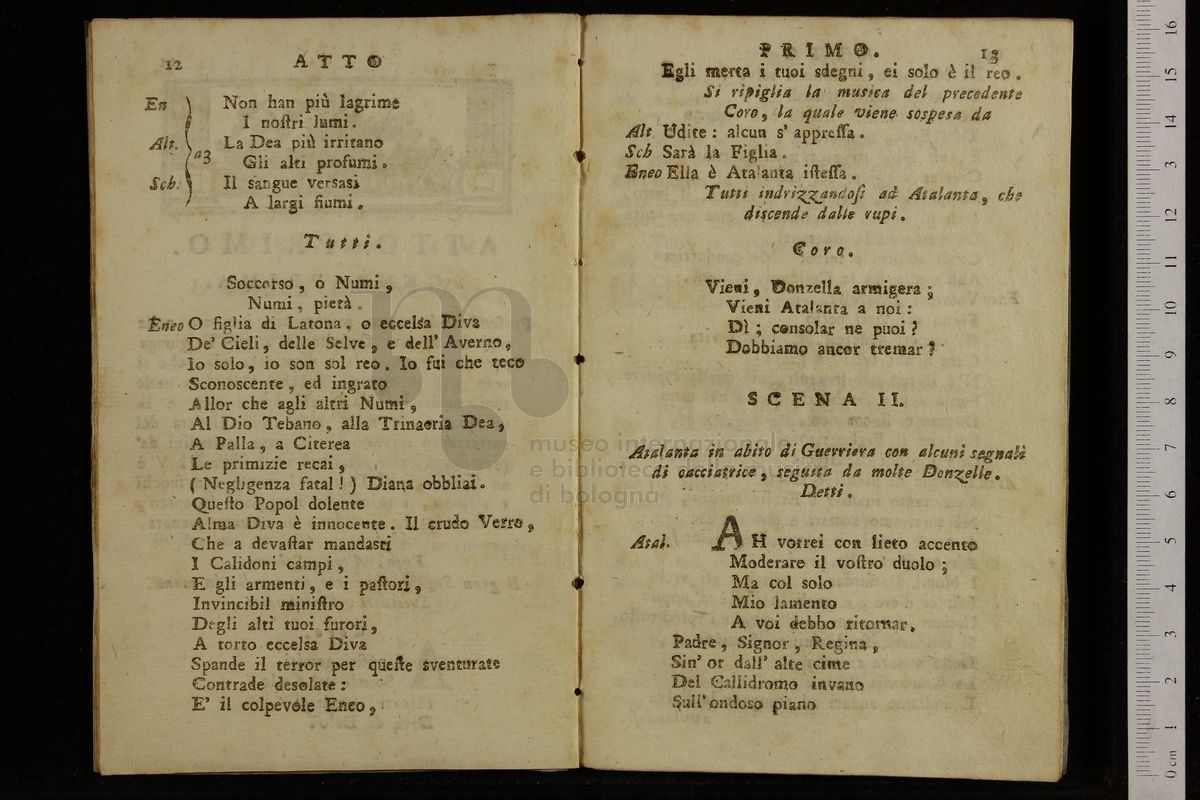 12 ATTO
En Non han più lagrime
I noſtri lumi.
Alt. La Dea più irritano
a3 Gli alti profumi.
Sch. Il sangue versasi
A largi fiumi.
Tutti.
Soccorso, o Numi,
Numi, pietà.
Eneo O figlia di Latona, o eccelsa Diva
De' Cieli, delle Selve, e dell' Averno,
Io solo, io son sol reo. Io fui che teco
Sconoscente, ed ingrato
Allor che agli altri Numi,
Al Dio Tebano, alla Trinacria Dea,
A Palla, a Citerea
Le primizie recai,
(Negligenza fatal!) Diana obbliai.
Queſto Popol dolente
Alma Diva è innocente. Il crudo Verro,
Che a devaſtar mandasti
I Calidoni campi,
E gli armenti, e i paſtori,
Invincibil miniſtro
Degli alti tuoi furori,
A torto eccelsa Diva
Spande il terror per queſte sventurate
Contrade desolate:
E' il colpevole Eneo,
PRIMO. 13
Egli merta i tuoi sdegni, ei solo è il reo.
Si ripiglia la musica del precedente
Coro, la quale viene sospesa da
Alt Udite: alcun s' appreſſa.
Sch Sarà la Figlia.
Eneo Ella è Atalanta iſteſſa.
Tutti indrizzandoſi ad Atalanta, che
discende dalle rupi.
Coro.
Vieni, Donzella armigera;
Vieni Atalanta a noi:
Dì; consolar ne puoi?
Dobbiamo ancor tremar?
SCENA II.
Atalanta in abito di Guerriera con alcuni segnali
di cacciatrice, seguita da molte Donzelle.
Detti.
Atal. AH vorrei con lieto accento
Moderare il voſtro duolo;
Ma col solo
Mio lamento
A voi debbo ritornar.
Padre, Signor, Regina,
Sin' or dall' alte cime
Del Callidromo invano
Sull' ondoso piano
museo internazionale
e biblioteca della musica
di bologna
0 cm 1 2 3 4 5 6 7 8 9 10 11 12 13 14 15 16